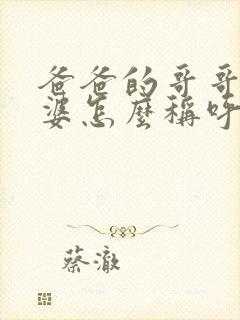 爸爸的哥哥
婆怎麼稱呼
蔡澈